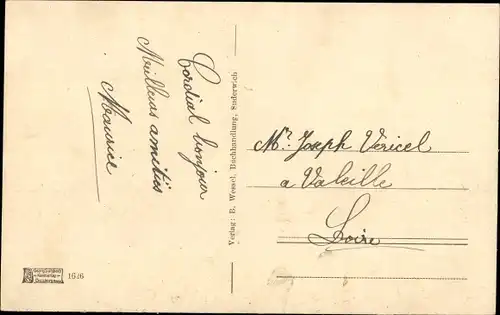 Cordial bonjour
Meilleures amitiés
Maurice
Verlag: B. Wessel, Buchhandlung, Suderwich
Mr. Joseph Vericel
a Valeille
Loire
1626